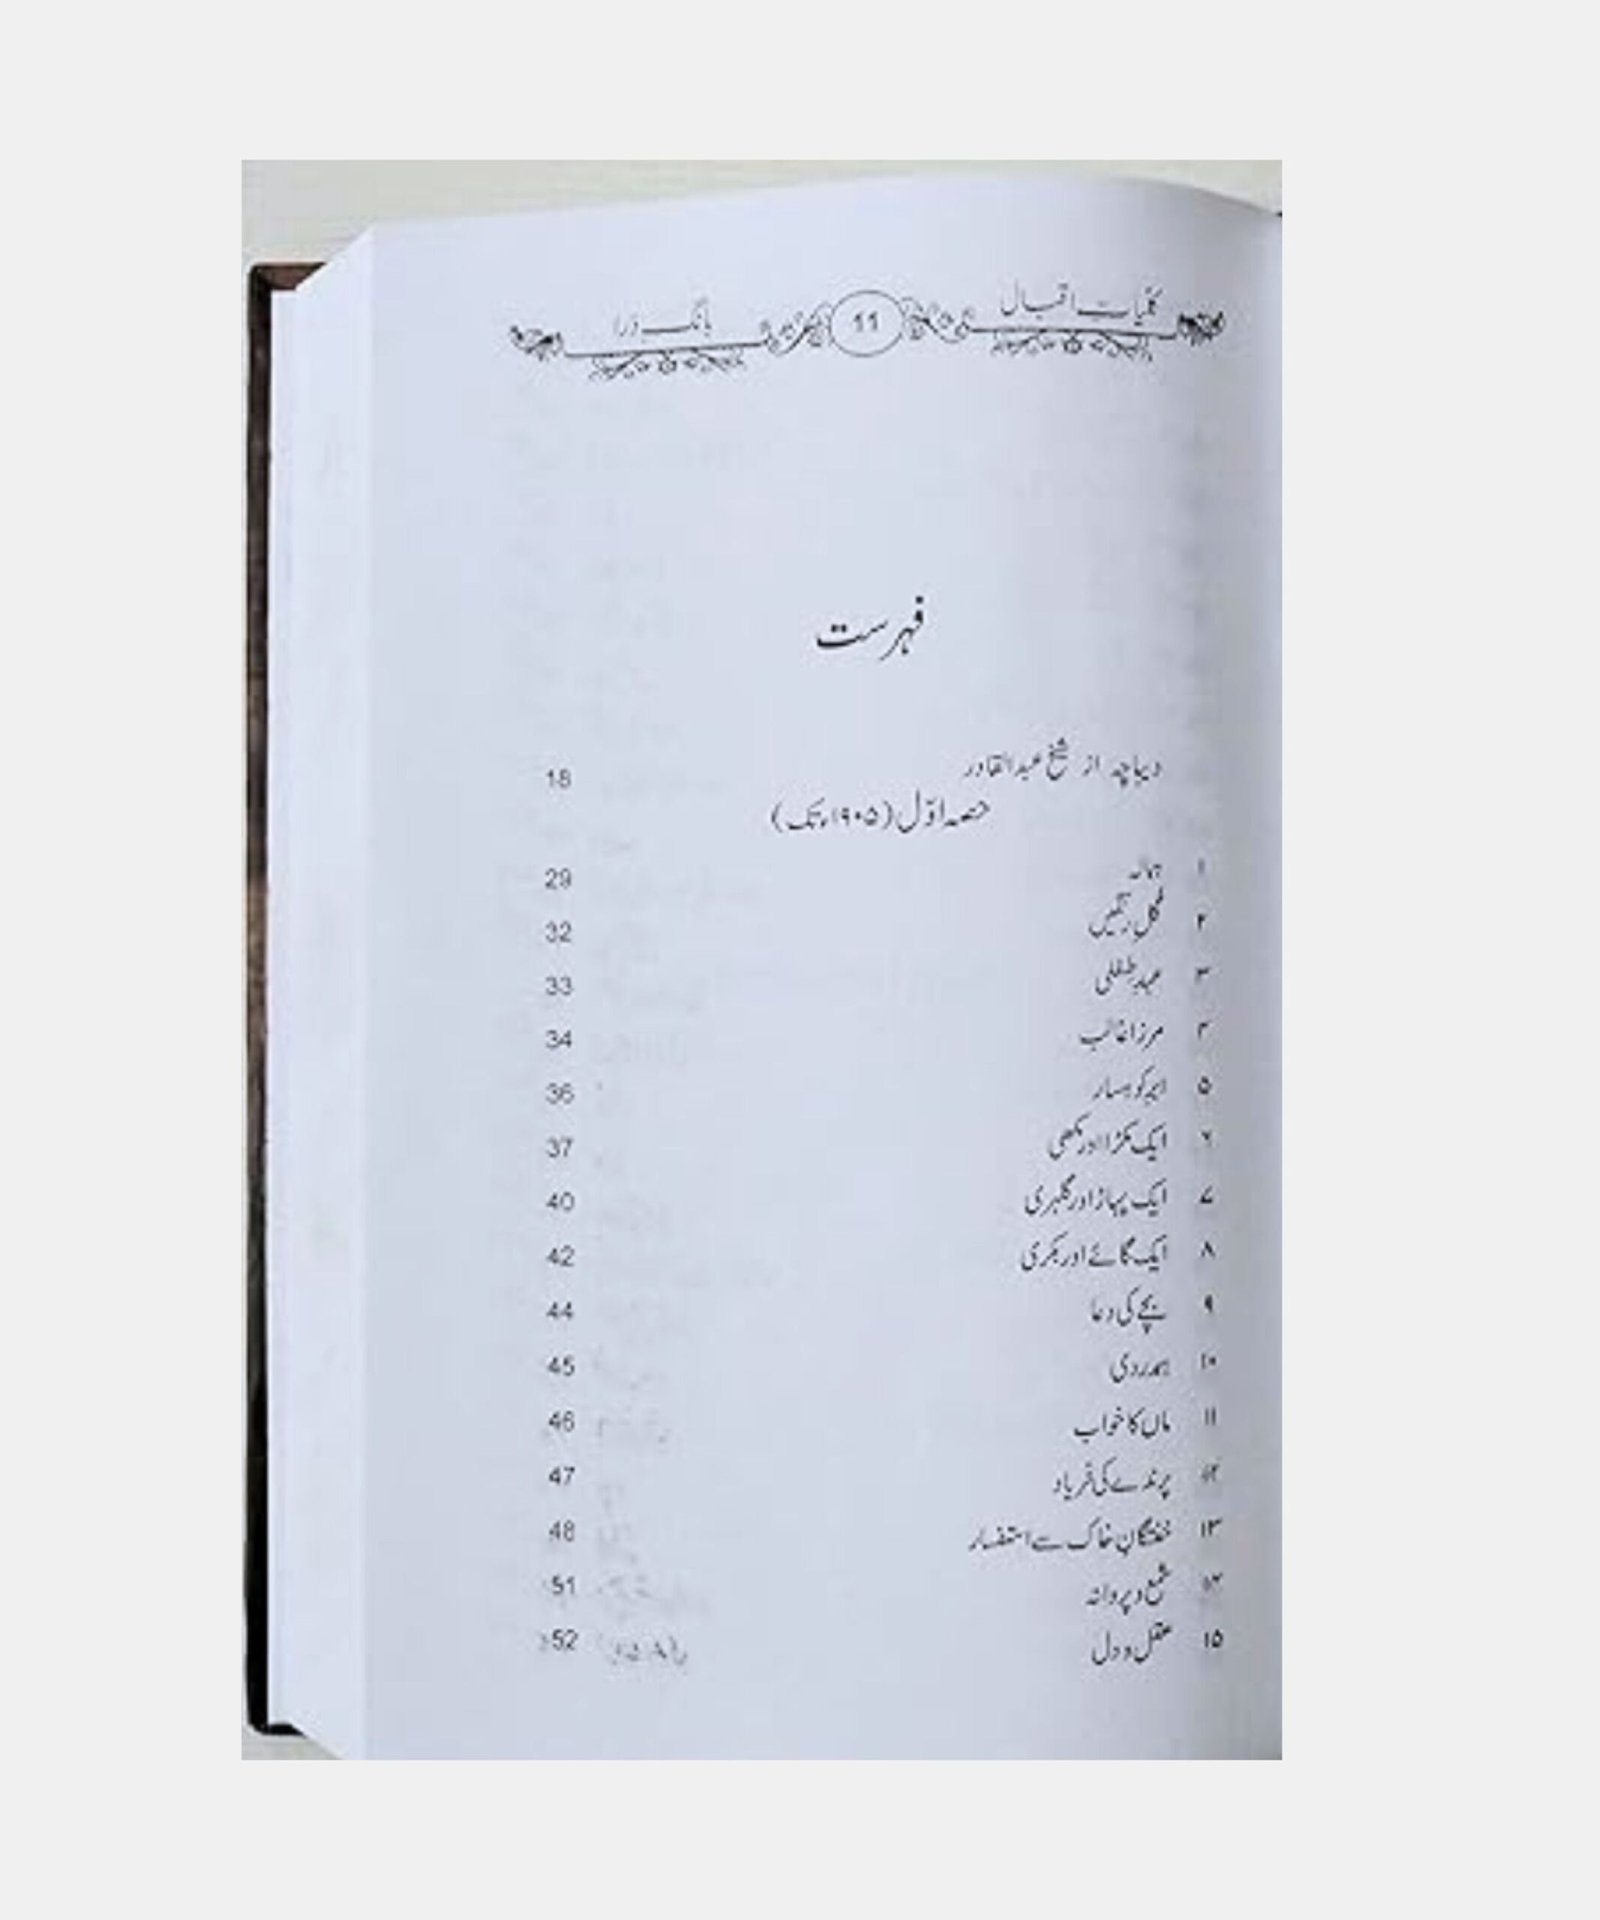 کلیاتِ اقبال 11 بانگِ درا
فہرست
دیباچہ از شیخ عبدالقادر 18
حصہ اوّل (۱۹۰۵ء تک)
۱ ہمالہ 29
۲ گلِ رنگیں 32
۳ عہدِ طفلی 33
۴ مرزا غالب 34
۵ ابرِ کوہسار 36
۶ ایک مکڑا اور مکھی 37
۷ ایک پہاڑ اور گلہری 40
۸ ایک گائے اور بکری 42
۹ بچے کی دعا 44
۱۰ ہمدردی 45
۱۱ ماں کا خواب 46
۱۲ پرندے کی فریاد 47
۱۳ خفتگانِ خاک سے استفسار 48
۱۴ شمع و پروانہ 51
۱۵ عقل و دل 52